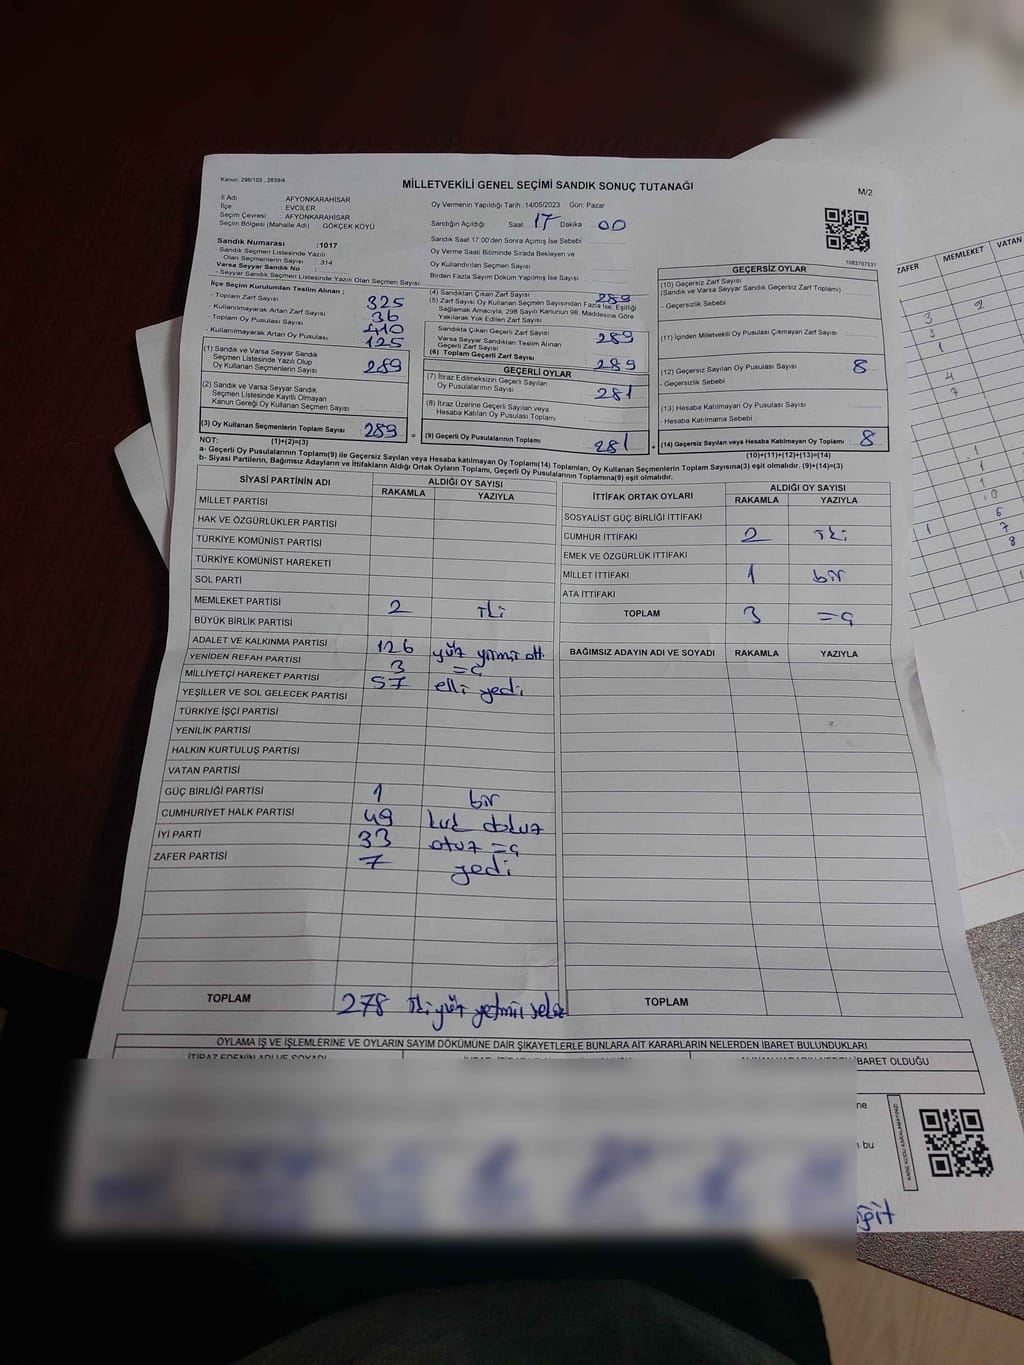 Kanun; 298/105 , 2839/4
MİLLETVEKİLİ GENEL SEÇİMİ SANDIK SONUÇ TUTANAĞI
M/2
İl Adı : AFYONKARAHİSAR
İlçe : EVCİLER
Seçim Çevresi : AFYONKARAHİSAR
Seçim Bölgesi (Mahalle Adı) : GÖKÇEK KÖYÜ
Oy Vermenin Yapıldığı Tarih :14/05/2023 Gün: Pazar
Sandığın Açıldığı Saat 17 Dakika : 00
Sandık Numarası :1017
- Sandık Seçmen Listesinde Yazılı
Olan Seçmenlerin Sayısı : 314
Varsa Seyyar Sandık No :
- Seyyar Sandık Seçmen Listesinde Yazılı Olan Seçmen Sayısı
Sandık Saat 17.00'den Sonra Açımış İse Sebebi
Oy Verme Saati Bitiminde Sırada Bekleyen ve
Oy Kullandırılan Seçmen Sayısı
Birden Fazla Sayım Döküm Yapılmış İse Sayısı
1083707531
İlçe Seçim Kurulundan Teslim Alınan ;
- Toplam Zarf Sayısı 325
- Kullanılmayarak Artan Zarf Sayısı 36
- Toplam Oy Pusulası Sayısı 410
- Kullanılmayarak Artan Oy Pusulası 125
(1) Sandık ve Varsa Seyyar Sandık
Seçmen Listesinde Yazılı Olup
Oy Kullanan Seçmenlerin Sayısı 289
(2) Sandık ve Varsa Seyyar Sandık
Seçmen Listesinde Kayıtlı Olmayan
Kanun Gereği Oy Kullanan Seçmen Sayısı
(3) Oy Kullanan Seçmenlerin Toplam Sayısı 289
(1)+(2)=(3)
(4) Sandıktan Çıkan Zarf Sayısı 289
(5) Zarf Sayısı Oy Kullanan Seçmen Sayısından Fazla İse, Eşitliği
Sağlamak Amacıyla, 298 Sayılı Kanunun 98. Maddesine Göre
Yakılarak Yok Edilen Zarf Sayısı
Sandıkta Çıkan Geçerli Zarf Sayısı 289
Varsa Seyyar Sandıktan Teslim Alınan
Geçerli Zarf Sayısı
(6) Toplam Geçerli Zarf Sayısı 289
GEÇERLİ OYLAR
(7) İtiraz Edilmeksizin Geçerli Sayılan
Oy Pusulalarının Sayısı 281
(8) İtiraz Üzerine Geçerli Sayılan veya
Hesaba Katılan Oy Pusulası Toplamı
= (9) Geçerli Oy Pusulalarının Toplamı 281
GEÇERSİZ OYLAR
(10) Geçersiz Zarf Sayısı
(Sandık ve Varsa Seyyar Sandık Geçersiz Zarf Toplamı)
- Geçersizlik Sebebi
(11) İçinden Milletvekili Oy Pusulası Çıkmayan Zarf Sayısı
(12) Geçersiz Sayılan Oy Pusulası Sayısı 8
- Geçersizlik Sebebi
(13) Hesaba Katılmayan Oy Pusulası Sayısı
- Hesaba Katılmama Sebebi
+ (14) Geçersiz Sayılan veya Hesaba Katılmayan Oy Toplamı : 8
(10)+(11)+(12)+(13)=(14)
NOT:
a- Geçerli Oy Pusulalarının Toplamı(9) ile Geçersiz Sayılan veya Hesaba katılmayan Oy Toplamı(14) Toplamları, Oy Kullanan Seçmenlerin Toplam Sayısına(3) eşit olmalıdır. (9)+(14)=(3)
b- Siyasi Partilerin, Bağımsız Adayların ve İttifakların Aldığı Ortak Oyların Toplamı, Geçerli Oy Pusulalarının Toplamına(9) eşit olmalıdır.
SİYASİ PARTİNİN ADI ALDIĞI OY SAYISI
RAKAMLA YAZIYLA
MİLLET PARTİSİ
HAK VE ÖZGÜRLÜKLER PARTİSİ
TÜRKİYE KOMÜNİST PARTİSİ
TÜRKİYE KOMÜNİST HAREKETİ
SOL PARTİ
MEMLEKET PARTİSİ 2 iki
BÜYÜK BİRLİK PARTİSİ
ADALET VE KALKINMA PARTİSİ 126 yüz yirmi altı
YENİDEN REFAH PARTİSİ 3 üç
MİLLİYETÇİ HAREKET PARTİSİ 57 elli yedi
YEŞİLLER VE SOL GELECEK PARTİSİ
TÜRKİYE İŞÇİ PARTİSİ
YENİLİK PARTİSİ
HALKIN KURTULUŞ PARTİSİ
VATAN PARTİSİ
GÜÇ BİRLİĞİ PARTİSİ 1 bir
CUMHURİYET HALK PARTİSİ 49 kırk dokuz
İYİ PARTİ 33 otuz üç
ZAFER PARTİSİ 7 yedi
TOPLAM 278 iki yüz yetmiş sekiz
İTTİFAK ORTAK OYLARI ALDIĞI OY SAYISI
RAKAMLA YAZIYLA
SOSYALİST GÜÇ BİRLİĞİ İTTİFAKI
CUMHUR İTTİFAKI 2 iki
EMEK VE ÖZGÜRLÜK İTTİFAKI
MİLLET İTTİFAKI 1 bir
ATA İTTİFAKI
TOPLAM 3 üç
BAĞIMSIZ ADAYIN ADI VE SOYADI RAKAMLA YAZIYLA
TOPLAM
OYLAMA İŞ VE İŞLEMLERİNE VE OYLARIN SAYIM DÖKÜMÜNE DAİR ŞİKAYETLERLE BUNLARA AİT KARARLARIN NELERDEN İBARET BULUNDUKLARI
İTİRAZ EDENİN ADI VE SOYADI
İBARET OLDUĞU
ne
bu
ZAFER MEMLEKET VATAN
2
3
3
1
4
7
1
1
1
10
6
1 7
8